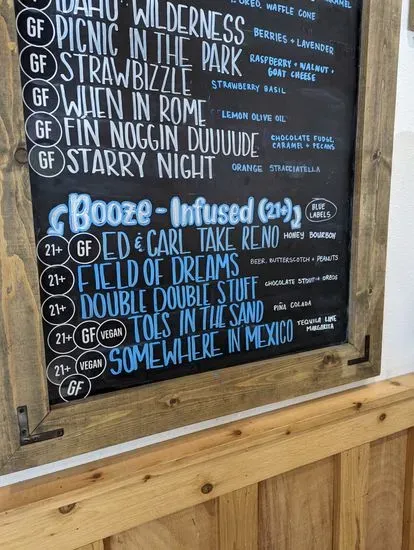 CARAMEL
OREO, WAFFLE CONE
GF IDAHO WILDERNESS BERRIES + LAVENDER
GF PICNIC IN THE PARK RASPBERRY + WALNUT +
GOAT CHEESE
GF STRAWBIZZLE STRAWBERRY BASIL
GF WHEN IN ROME LEMON OLIVE OIL
GF FIN NOGGIN DUUUUDE CHOCOLATE FUDGE,
CARAMEL + PECANS
GF STARRY NIGHT ORANGE STRACCIATELLA
Booze-Infused (21+) BLUE
LABELS
21+ GF ED & CARL TAKE RENO HONEY BOURBON
21+ FIELD OF DREAMS BEER, BUTTERSCOTCH + PEANUTS
21+ DOUBLE DOUBLE STUFF CHOCOLATE STOUT + OREOS
21+ GF VEGAN TOES IN THE SAND PIÑA COLADA
21+ VEGAN GF SOMEWHERE IN MEXICO TEQUILA LIME
MARGARITA